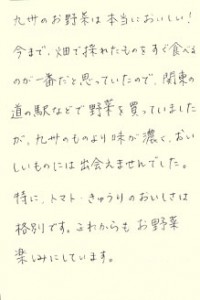 九州のお野菜は本当においしい!
今まで、畑で採れたものをすぐ食べる
のが一番だと思っていたので、関東の
道の駅などで野菜を買っていました
が、九州のものより味が濃く、おい
しいものには出会えませんでした。
特に、トマト・きゅうりのおいしさは
格別です。これからもお野菜
楽しみにしています。